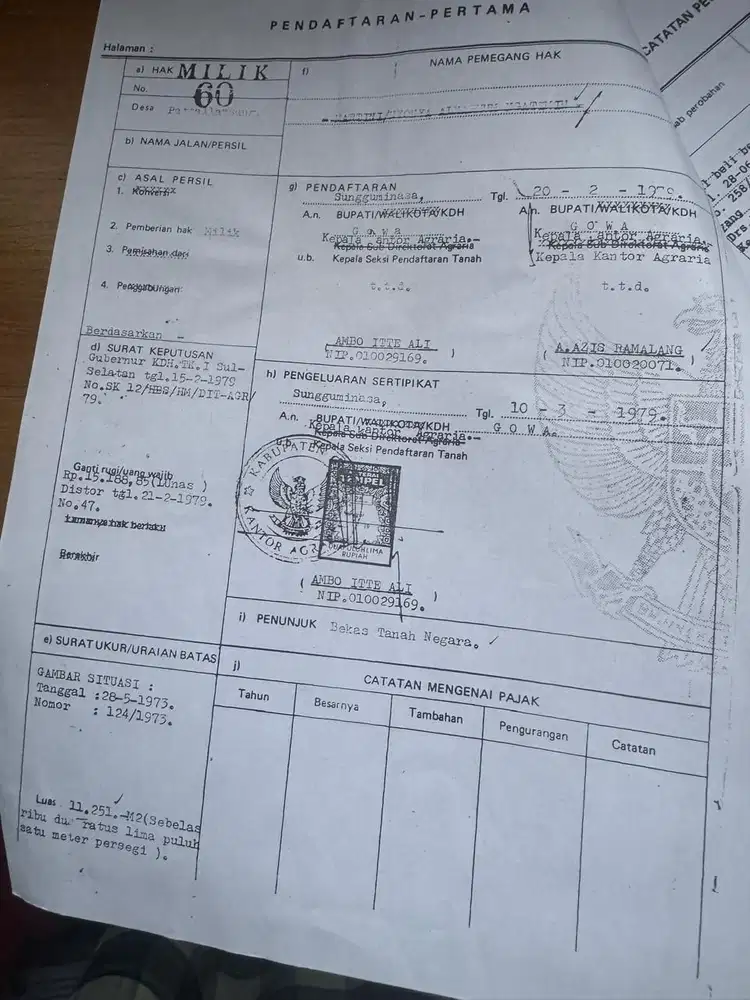 PENDAFTARAN-PERTAMA
Halaman :
a) HAK MILIK
No. 60
Desa
b) NAMA JALAN/PERSIL
c) ASAL PERSIL
1. Konversi
2. Pemberian hak Milik
3. Pemisahan dari
4. Penggabungan:
Berdasarkan -
d) SURAT KEPUTUSAN
Gubernur KDH.TK.I Sul-
Selatan tgl.15-2-1979
No.SK 12/HBS/HM/DIT-AGR/
79.
Ganti rugi/uang wajib
Rp.15.188,85(lunas )
Distor tgl.21-2-1979.
No.47.
Lamanya hak berlaku
Berakhir
e) SURAT UKUR/URAIAN BATAS
GAMBAR SITUASI :
Tanggal :28-5-1973.
Nomor : 124/1973.
Luas 11.251.-M2(Sebelas
ribu dua ratus lima puluh
satu meter persegi ).
f) NAMA PEMEGANG HAK
g) PENDAFTARAN
Sungguminasa, Tgl. 20 - 2 - 1979.
A.n. BUPATI/WALIKOTA/KDH
G o w a
Kepala Kantor Agraria.-
Kepala Sub Direktorat Agraria
u.b. Kepala Seksi Pendaftaran Tanah
t.t.d.
AMBO ITTE ALI )
NIP.010029169.
A.n. BUPATI/WALIKOTA/KDH
G O W A
Kepala Kantor Agraria.
Kepala Sub Direktorat Agraria
Kepala Kantor Agraria
t.t.d.
( A.AZIS RAMALANG )
NIP.010020071.
h) PENGELUARAN SERTIPIKAT
Sungguminasa, Tgl. 10 - 3 - 1979.
A.n. BUPATI/WALIKOTA/KDH G O W A.
Kepala kantor Agraria.-
Kepala Sub Direktorat Agraria
u.b. Kepala Seksi Pendaftaran Tanah
KABUPATEN
KANTOR AGR
RUPIAH
( AMBO ITTE ALI )
NIP.010029169.
i) PENUNJUK Bekas Tanah Negara.
j) CATATAN MENGENAI PAJAK
Tahun Besarnya Tambahan Pengurangan Catatan
CATATAN PE
ab perobahan